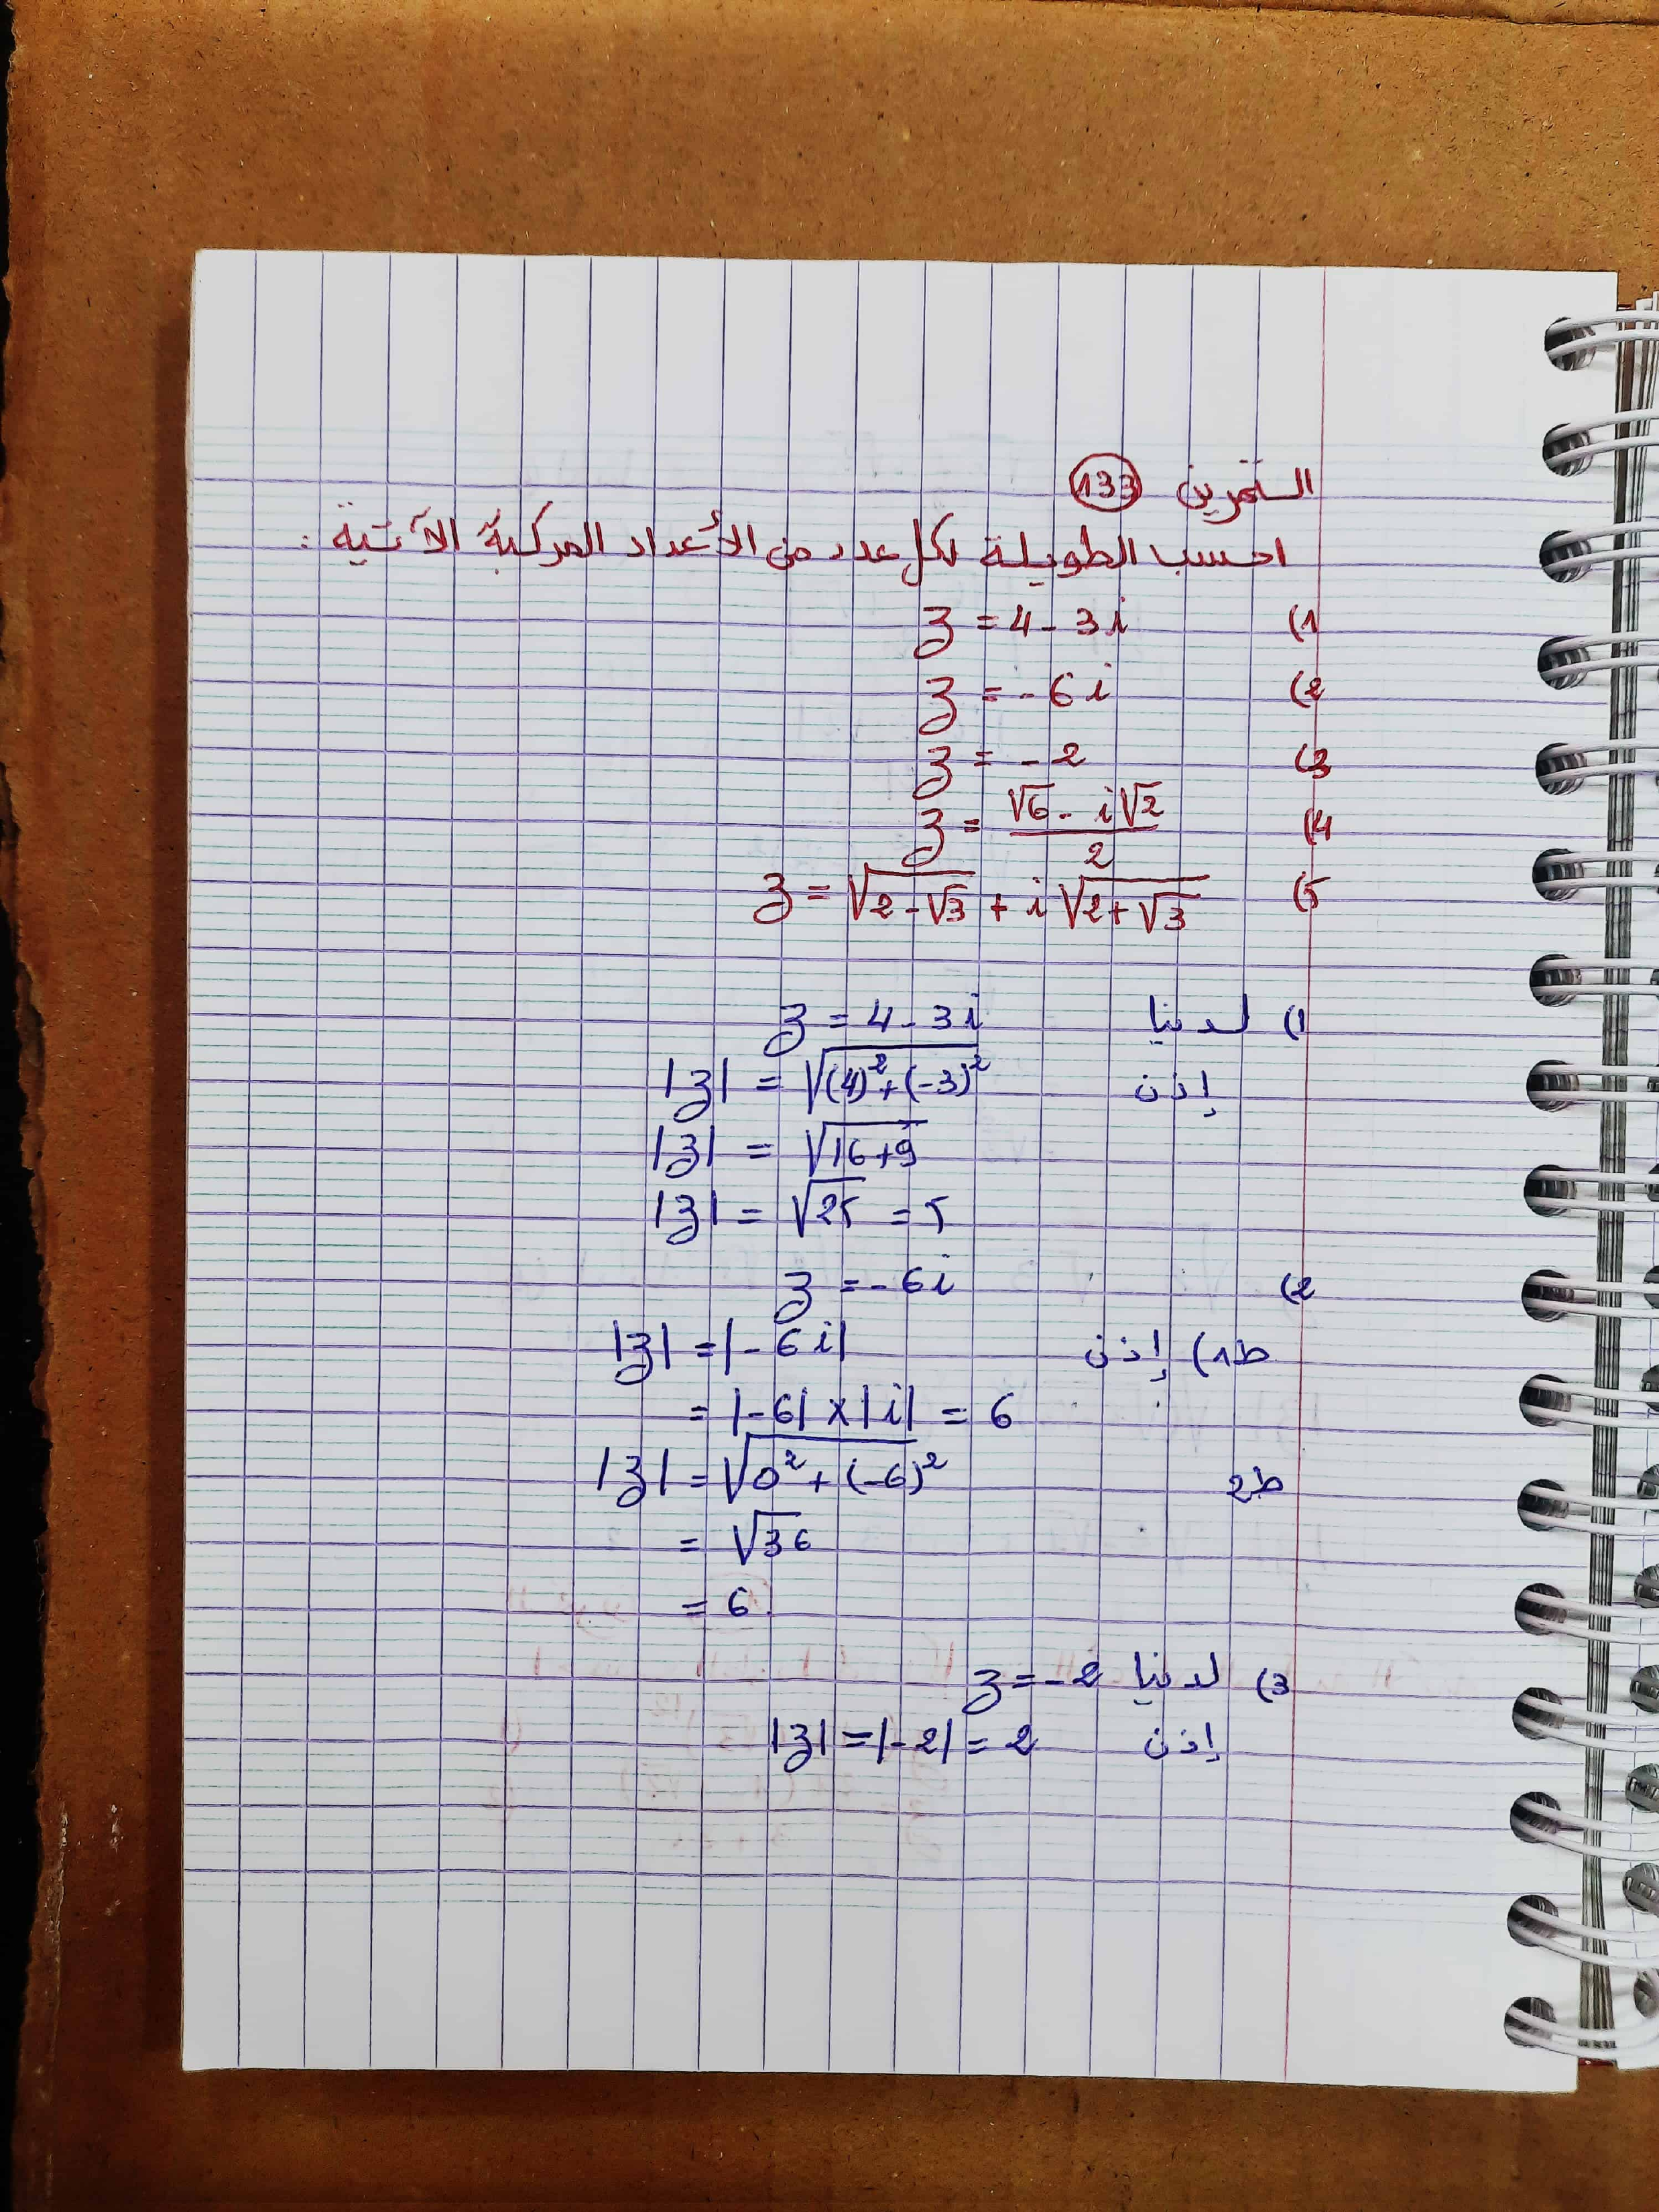 التمرين 133
احسب الطويلة لكل عدد من الأعداد المركبة الآتية :
1) z = 4 - 3i
2) z = - 6i
3) z = - 2
4) z = (√6 - i√2)/2
5) z = √(2-√3) + i√(2+√3)
1) لدينا z = 4 - 3i
إذن |z| = √((4)²+(-3)²)
|z| = √(16+9)
|z| = √25 = 5
2) z = - 6i
ط1) إذن |z| = |- 6i|
= |-6| × |i| = 6
ط2 |z| = √(0² + (-6)²)
= √36
= 6
3) لدينا z = - 2
إذن |z| = |-2| = 2